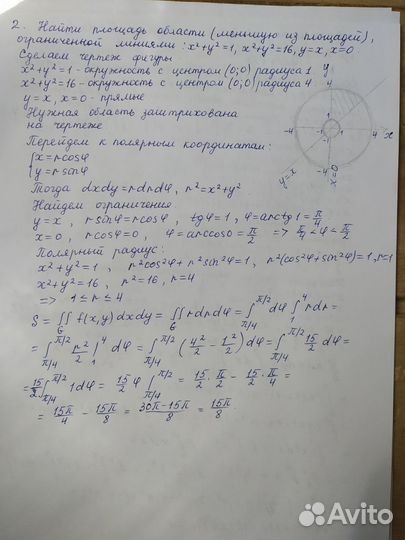 2. Найти площадь области (меньшую из площадей),
ограниченной линиями: x²+y²=1, x²+y²=16, y=x, x=0
Сделаем чертеж фигуры
x²+y²=1 - окружность с центром (0;0) радиуса 1
x²+y²=16 - окружность с центром (0;0) радиуса 4
y=x, x=0 - прямые
Нужная область заштрихована
на чертеже
Перейдем к полярным координатам:
{x=rcosφ
{y=rsinφ
Тогда dxdy=rdrdφ, r²=x²+y²
Найдем ограничения:
y=x, rsinφ=rcosφ, tgφ=1, φ=arctg1=π/4
x=0, rcosφ=0, φ=arccos0=π/2 => π/4≤φ≤π/2
Полярный радиус:
x²+y²=1, r²cos²φ+r²sin²φ=1, r²(cos²φ+sin²φ)=1, r=1
x²+y²=16, r²=16, r=4
=> 1≤r≤4
S=∬_G f(x,y)dxdy=∬_G rdrdφ=∫_{π/4}^{π/2}dφ∫_1^4 rdr=
=∫_{π/4}^{π/2} r²/2|_1^4 dφ=∫_{π/4}^{π/2}(4²/2-1²/2)dφ=∫_{π/4}^{π/2} 15/2 dφ=
=15/2∫_{π/4}^{π/2}1dφ=15/2φ|_{π/4}^{π/2}=15/2·π/2-15/2·π/4=
=15π/4-15π/8=30π-15π/8=15π/8
y
4
1
-4
-1
1
4
x
-1
-4
y=x
x=0
Avito